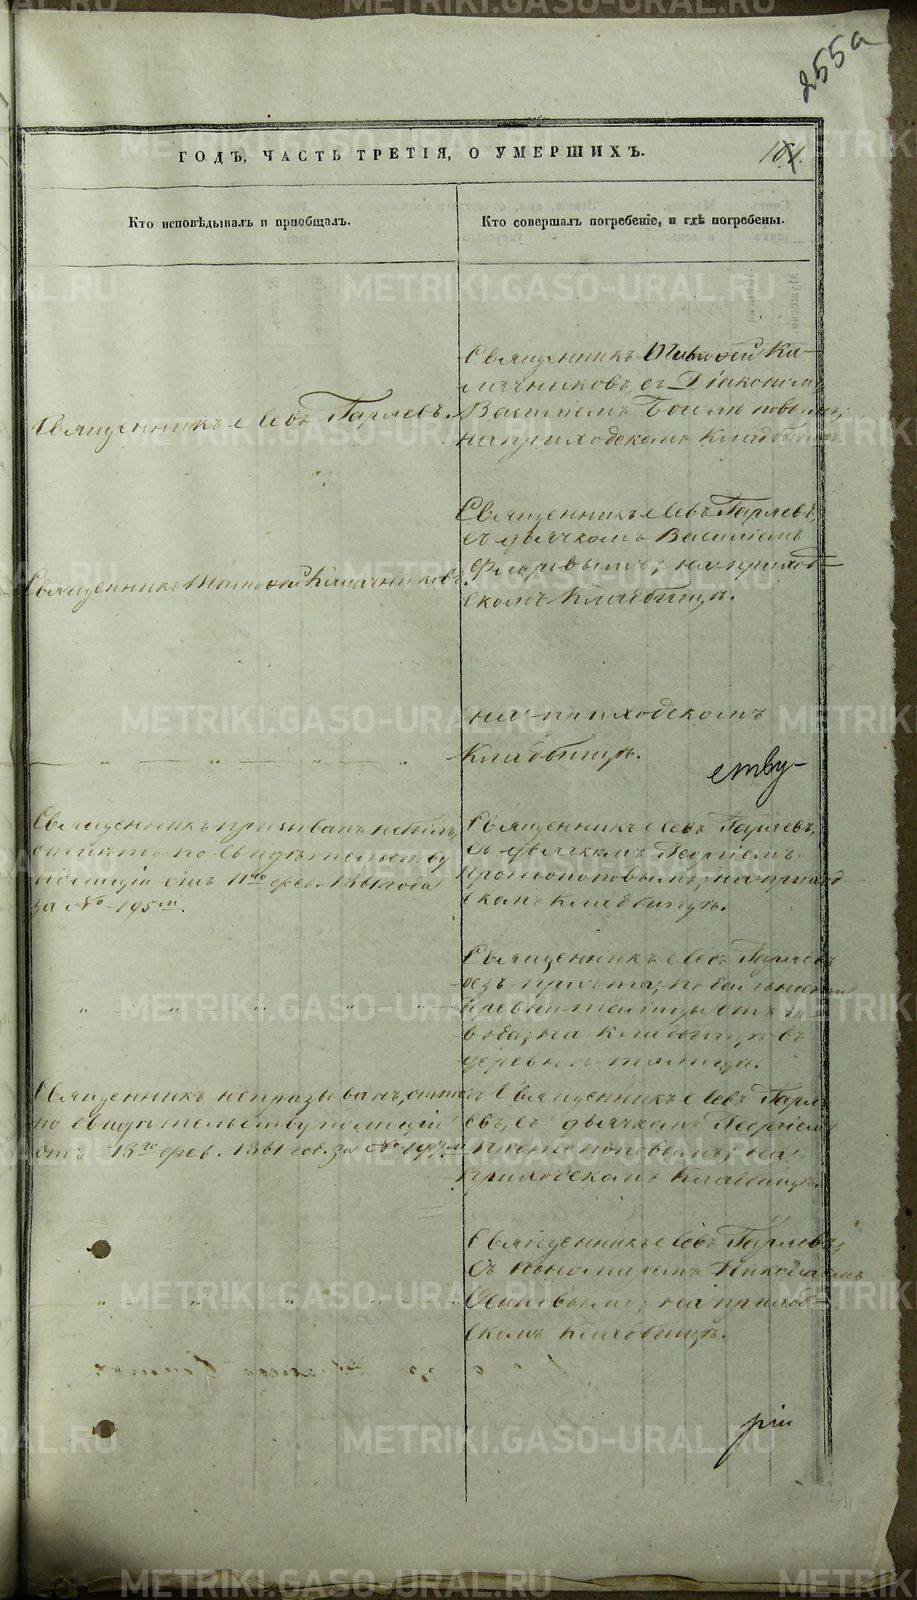 255а
ГОДЪ, ЧАСТЬ ТРЕТІЯ, О УМЕРШИХЪ.
101.
Кто исповѣдывалъ и пріобщалъ.
Кто совершалъ погребеніе, и гдѣ погребены.
Священникъ Левъ Гаряевъ.
Священникъ Тимофей Ка-
лачниковъ, съ Діакономъ
Василіемъ
на приходскомъ Кладбищѣ
Священникъ Тимофей Калачниковъ.
Священникъ Левъ Гаряевъ,
съ дьячкомъ Василіемъ
Флоровымъ; на приход-
скомъ Кладбищѣ.
на приходскомъ
Кладбищѣ.
ству-
Священникъ призыванъ небылъ,
отпѣтъ по свидѣтельству
полиціи отъ 11го фев. 1861 года
за № 195м.
Священникъ Левъ Гаряевъ,
съ дьячкомъ Георгіемъ
Протопоповымъ; на приход-
скомъ Кладбищѣ.
Священникъ Левъ Гаряевъ
безъ причта; по дальности
деревни отъ за-
вода; на Кладбищѣ въ
деревнѣ
Священникъ непризыванъ, отпѣтъ
по свидѣтельству полиціи
отъ 13го фев. 1861 год. за №
Священникъ Левъ Гаря-
евъ, съ дьячкомъ Георгіемъ
Протопоповымъ; на
приходскомъ Кладбищѣ.
Священникъ Левъ Гаряевъ,
Съ пономаремъ Николаемъ
Осиповымъ; на приход-
скомъ Кладбищѣ.
рій
METRIKI.GASO-URAL.RU